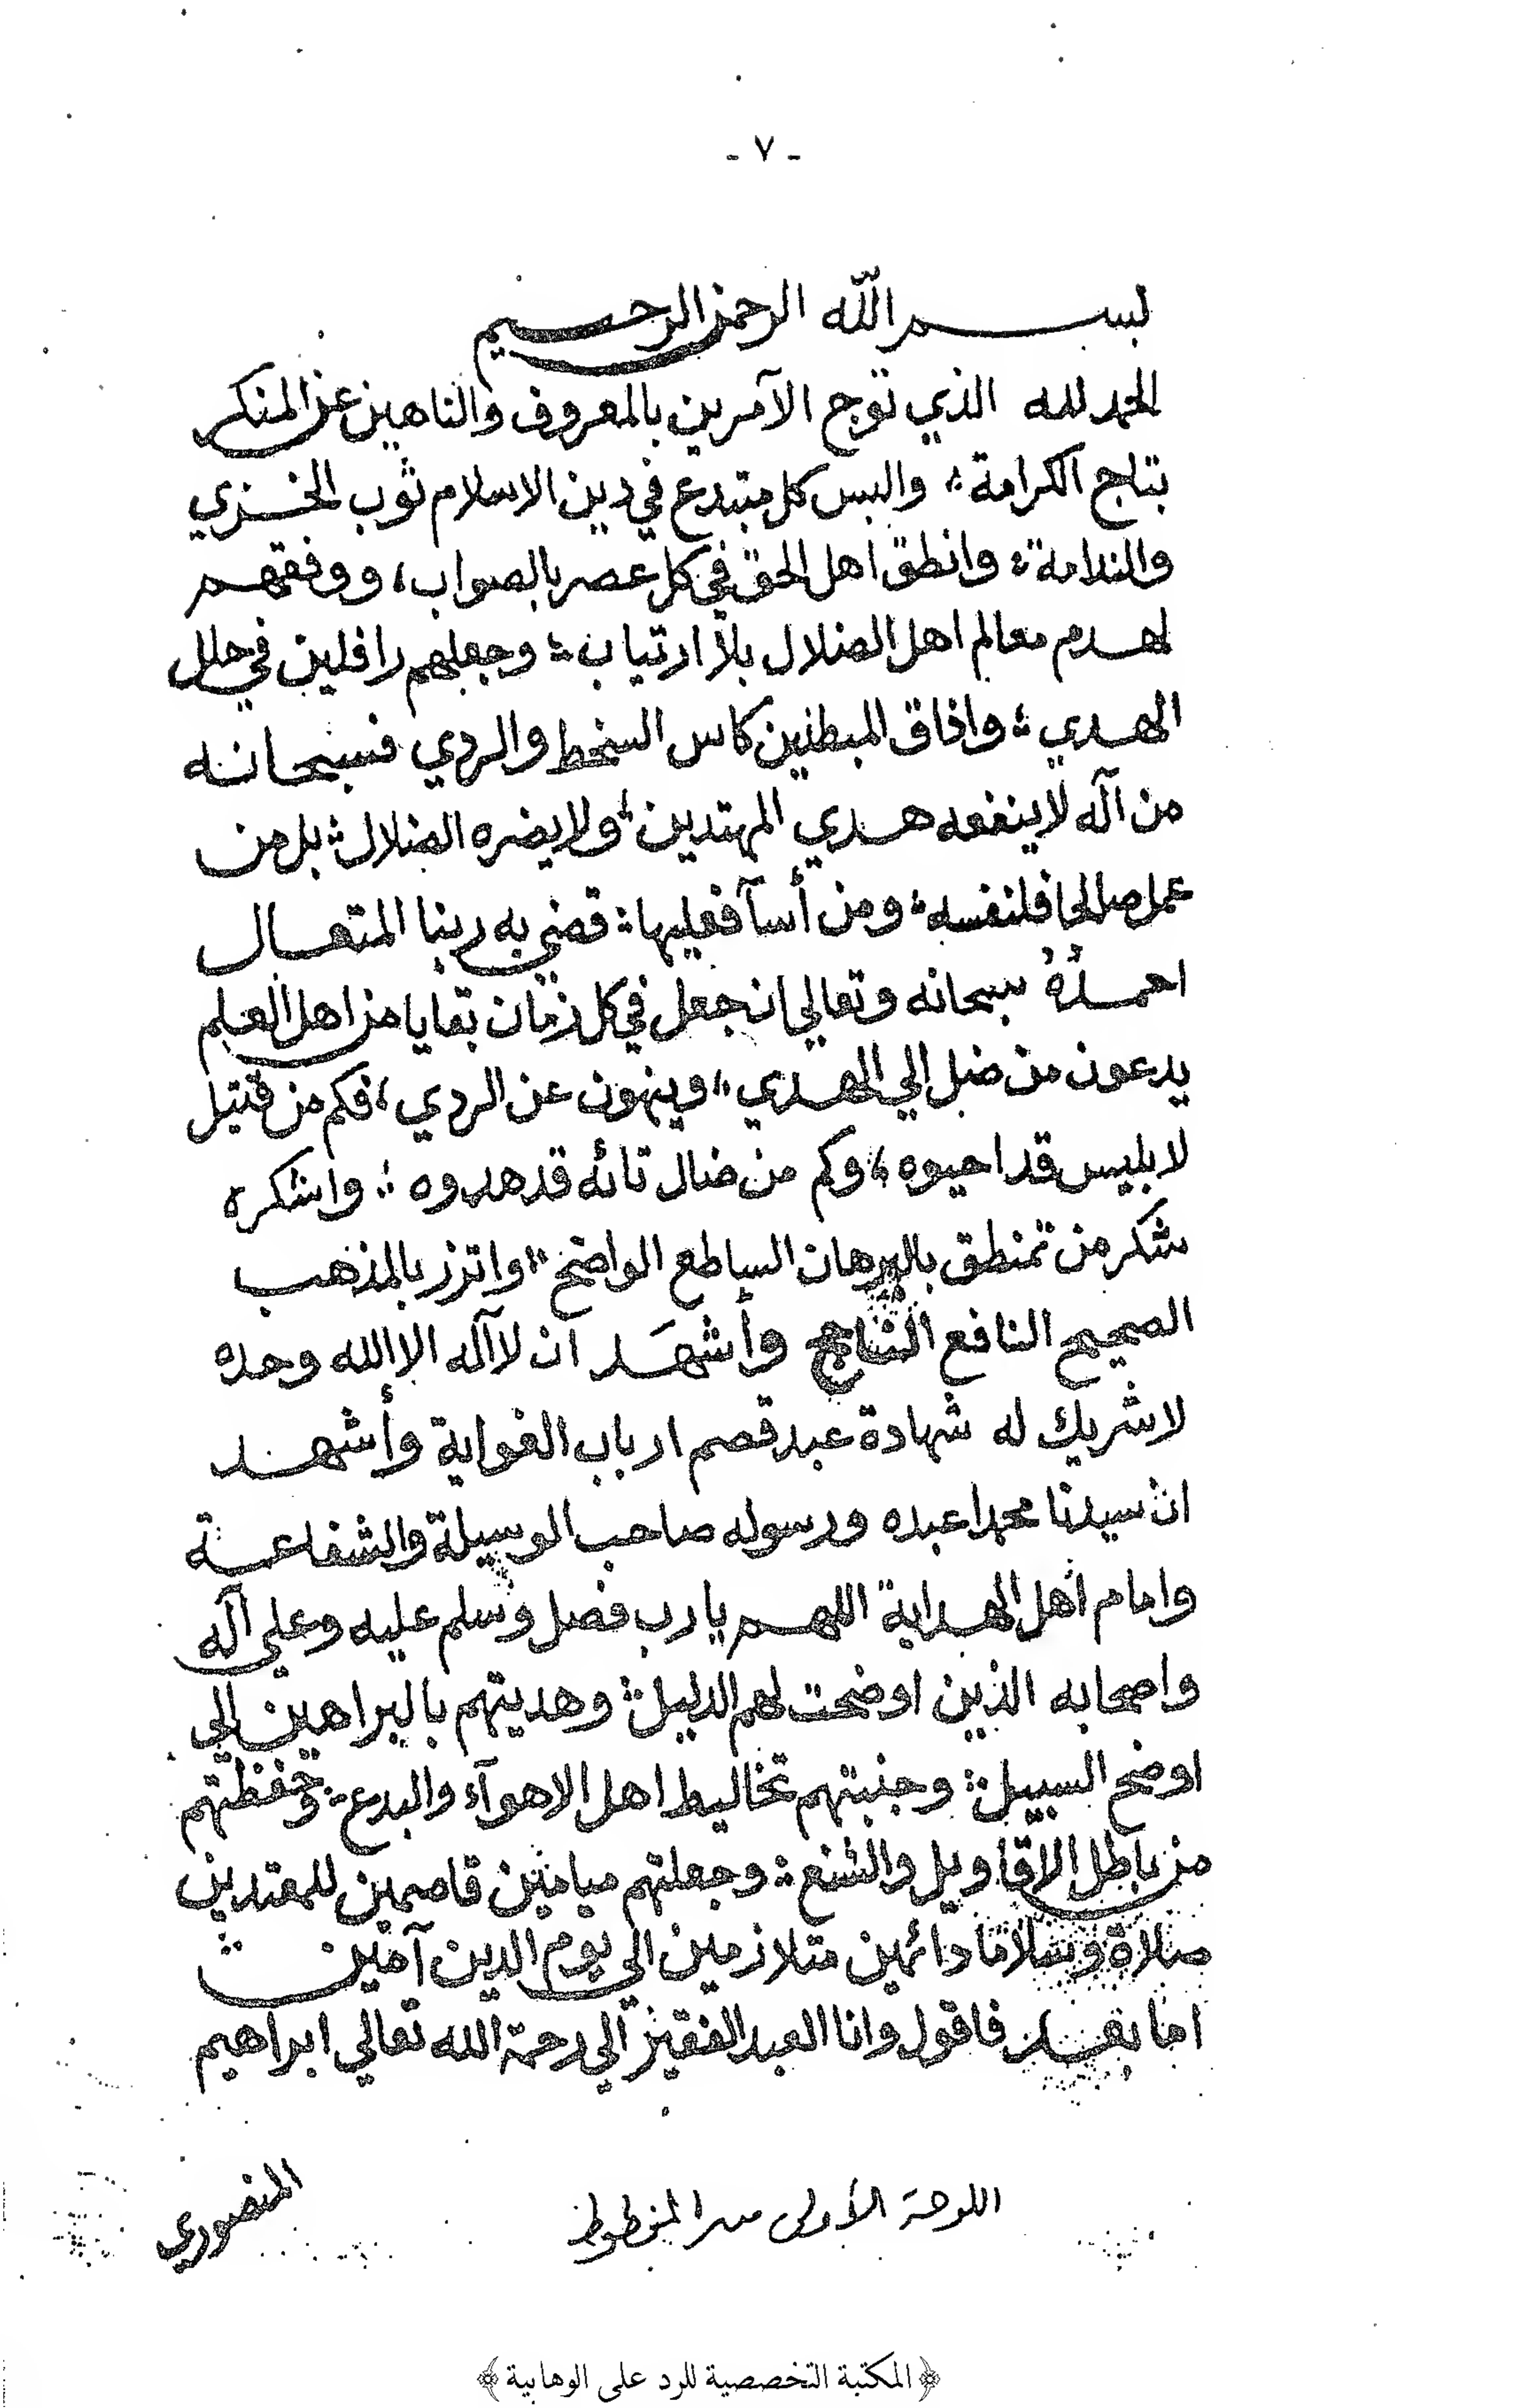 - ٧ -
بسم الله الرحمن الرحيم
الحمد لله الذي توج الآمرين بالمعروف والناهين عن المنكر
بتاج الكرامة ؛ والبس كل مبتدع في دين الاسلام ثوب الخزي
والندامة ؛ وانطق اهل الحق في كل عصر بالصواب ، ووفقهم
لهدم معالم اهل الضلال بلا ارتياب ؛ وجعلهم رافلين في حلل
الهدي ؛ واذاق المبطلين كاس السخط والردي فسبحانه
من آله لا ينفعه هدي المهتدين ؛ ولا يضره الضلال ؛ بل من
عمل صالحا فلنفسه ؛ ومن أسآ فعليها ؛ قضي به ربنا المتعال
احمدُهُ سبحانه وتعالي ان جعل في كل زمان بقايا من اهل العلم
يدعون من ضل الي الهدي ؛ وينهون عن الردي ؛ فكم من قتيل
لابليس قد احيوه ؛ وكم من ضال تائه قد هدوه ؛ واشكره
شكر من تمنطق بالبرهان الساطع الواضح ؛ واتزر بالمذهب
الصحيح النافع الناجح وأشهَد ان لا آله الا الله وحده
لا شريك له شهادة عبد قصم ارباب الغواية وأشهد
ان سيدنا محمدا عبده ورسوله صاحب الوسيلة والشفاعة
وامام اهل الهداية اللهم يا رب فصل وسلم عليه وعلي آله
واصحابه الذين اوضحت لهم الدليل ؛ وهديتهم بالبراهين الي
اوضح السبيل ؛ وجنبتهم تخاليط اهل الاهوآء والبدع ؛ وحفظتهم
من باطل الاقاويل والشنع ؛ وجعلتهم ميامين قاصمين للمعتدين
صلاة وسلاما دائمين متلازمين الي يوم الدين آمين ؛
اما بعد فاقول وانا العبد الفقير الي رحمة الله تعالي ابراهيم
المنصوري
اللوحة الأولى من المخطوط
﴿المكتبة التخصصية للرد على الوهابية﴾